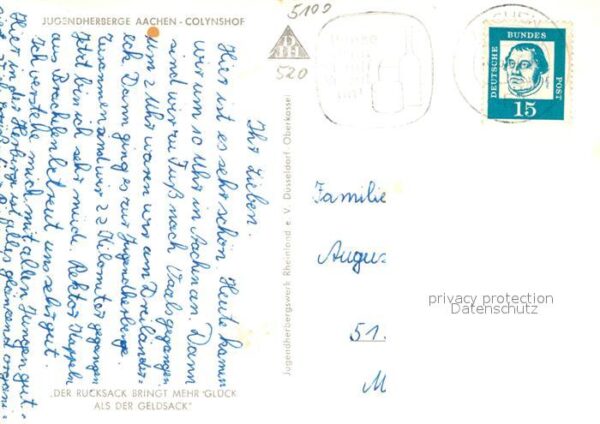 JUGENDHERBERGE AACHEN - COLYNSHOF
5100
520
DJH
DEUTSCHE BUNDESPOST
15
Ihr Lieben.
Hier ist es sehr schön. Heute kamen
wir um 10 Uhr in Aachen an. Dann
sind wir zu Fuß nach Vaals gegangen
um 2 Uhr waren wir am Dreiländer-
eck. Dann ging es zur Jugendherberge.
Zusammen sind wir 22 Kilometer gegangen
Jetzt bin ich sehr müde. Rektor Kappeln
aus Brachelen betreut uns sehr gut.
Ich verstehe mich mit allen Jungen gut.
Hier in der Herberge ist alles glänzend organi-
Familie
Augus
51.
M
privacy protection
Datenschutz
Jugendherbergswerk Rheinland e. V. Düsseldorf Oberkassel
„DER RUCKSACK BRINGT MEHR GLÜCK
ALS DER GELDSACK“